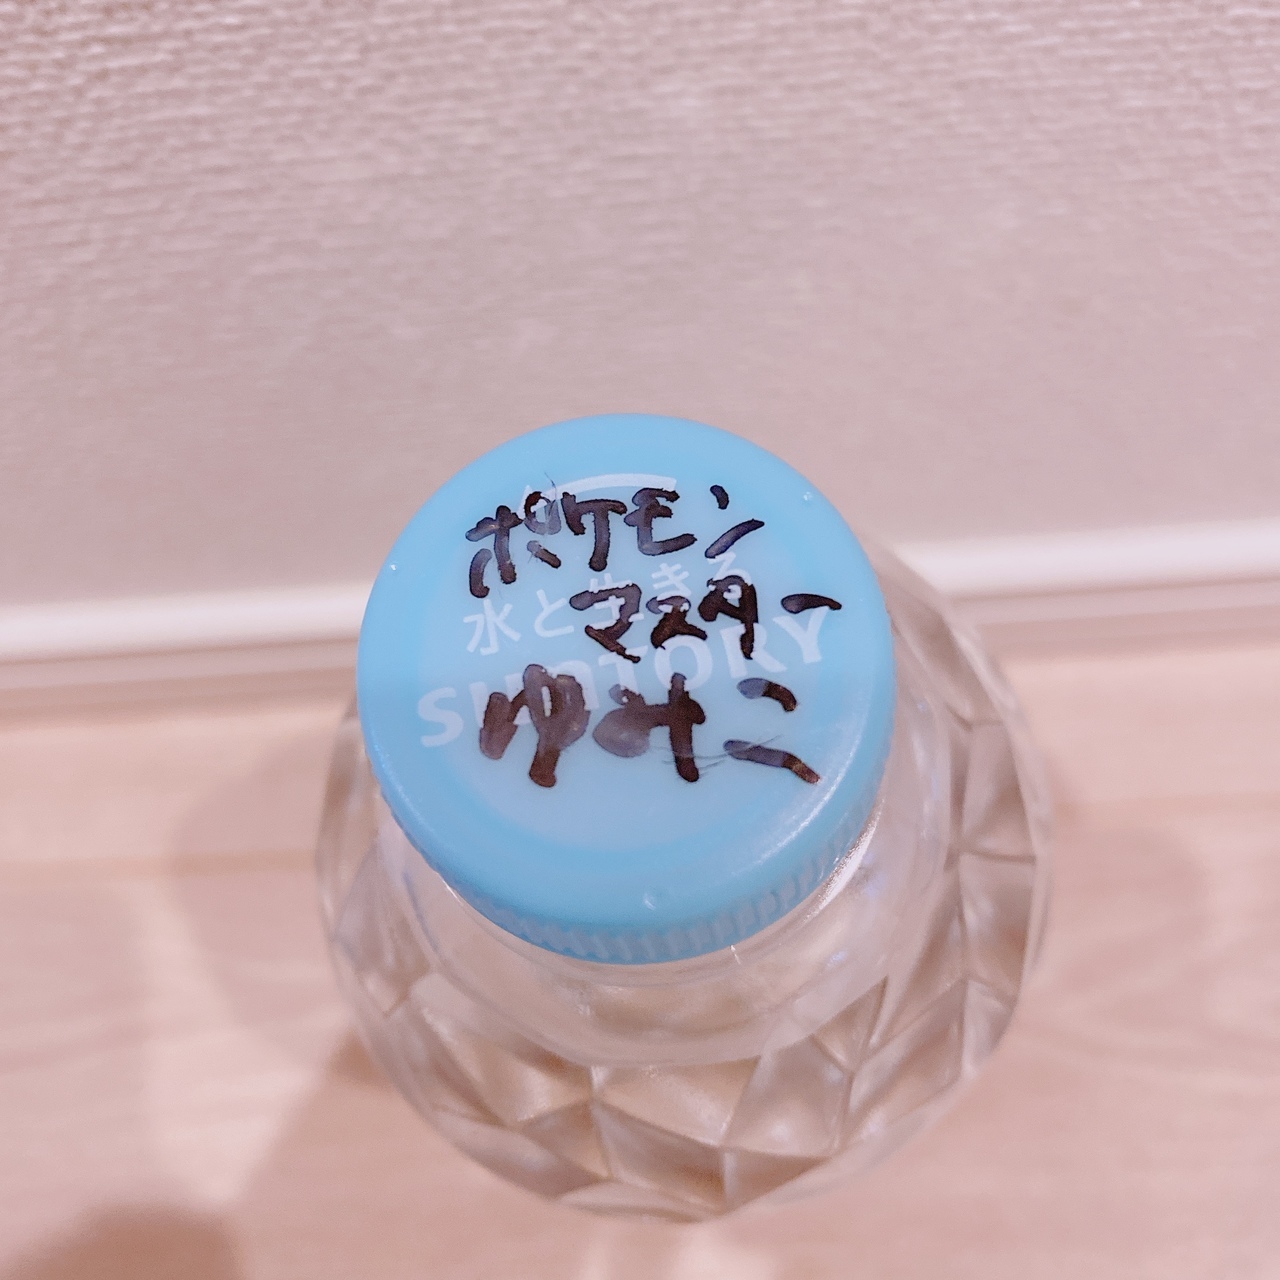 ポケモン
マスター
ゆみこ
水と生きる
SUNTORY